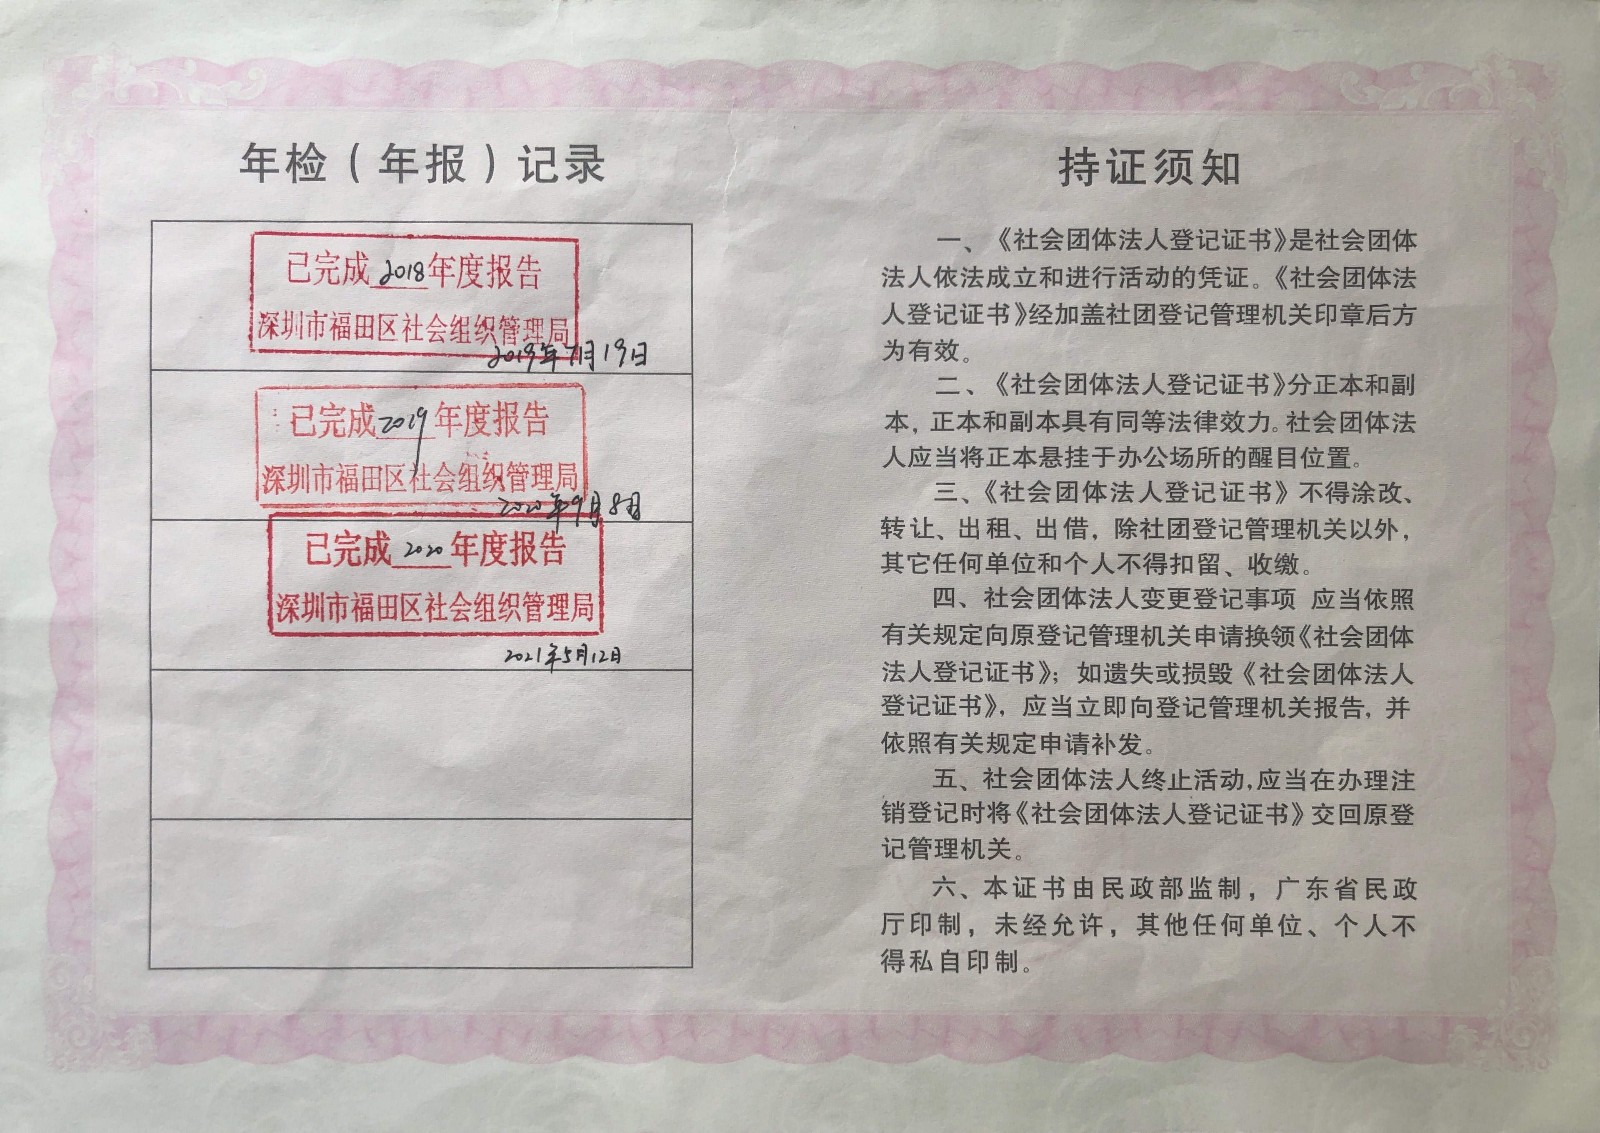 年检（年报）记录
已完成2018年度报告
深圳市福田区社会组织管理局
2019年7月19日
已完成2019年度报告
深圳市福田区社会组织管理局
2020年9月8日
已完成2020年度报告
深圳市福田区社会组织管理局
2021年5月12日
持证须知
一、《社会团体法人登记证书》是社会团体
法人依法成立和进行活动的凭证。《社会团体法
人登记证书》经加盖社团登记管理机关印章后方
为有效。
二、《社会团体法人登记证书》分正本和副
本，正本和副本具有同等法律效力。社会团体法
人应当将正本悬挂于办公场所的醒目位置。
三、《社会团体法人登记证书》不得涂改、
转让、出租、出借，除社团登记管理机关以外，
其它任何单位和个人不得扣留、收缴。
四、社会团体法人变更登记事项 应当依照
有关规定向原登记管理机关申请换领《社会团体
法人登记证书》；如遗失或损毁《社会团体法人
登记证书》，应当立即向登记管理机关报告，并
依照有关规定申请补发。
五、社会团体法人终止活动，应当在办理注
销登记时将《社会团体法人登记证书》交回原登
记管理机关。
六、本证书由民政部监制，广东省民政
厅印制，未经允许，其他任何单位、个人不
得私自印制。